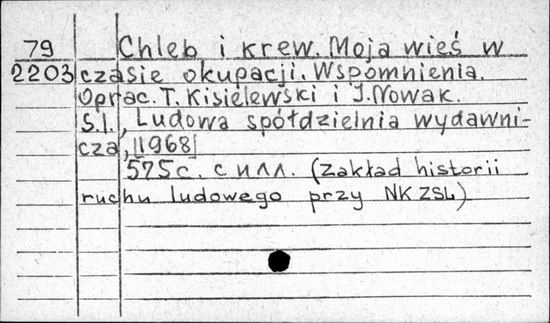 79 Chleb i krew. Moja wieś w
2203 czasie okupacji. Wspomnienia.
Oprac. T. Kisielewski i J. Nowak.
S.l., Ludowa spółdzielnia wydawni-
cza, [1968]
575с. с илл. (Zakład historii
ruchu ludowego przy NK ZSL)